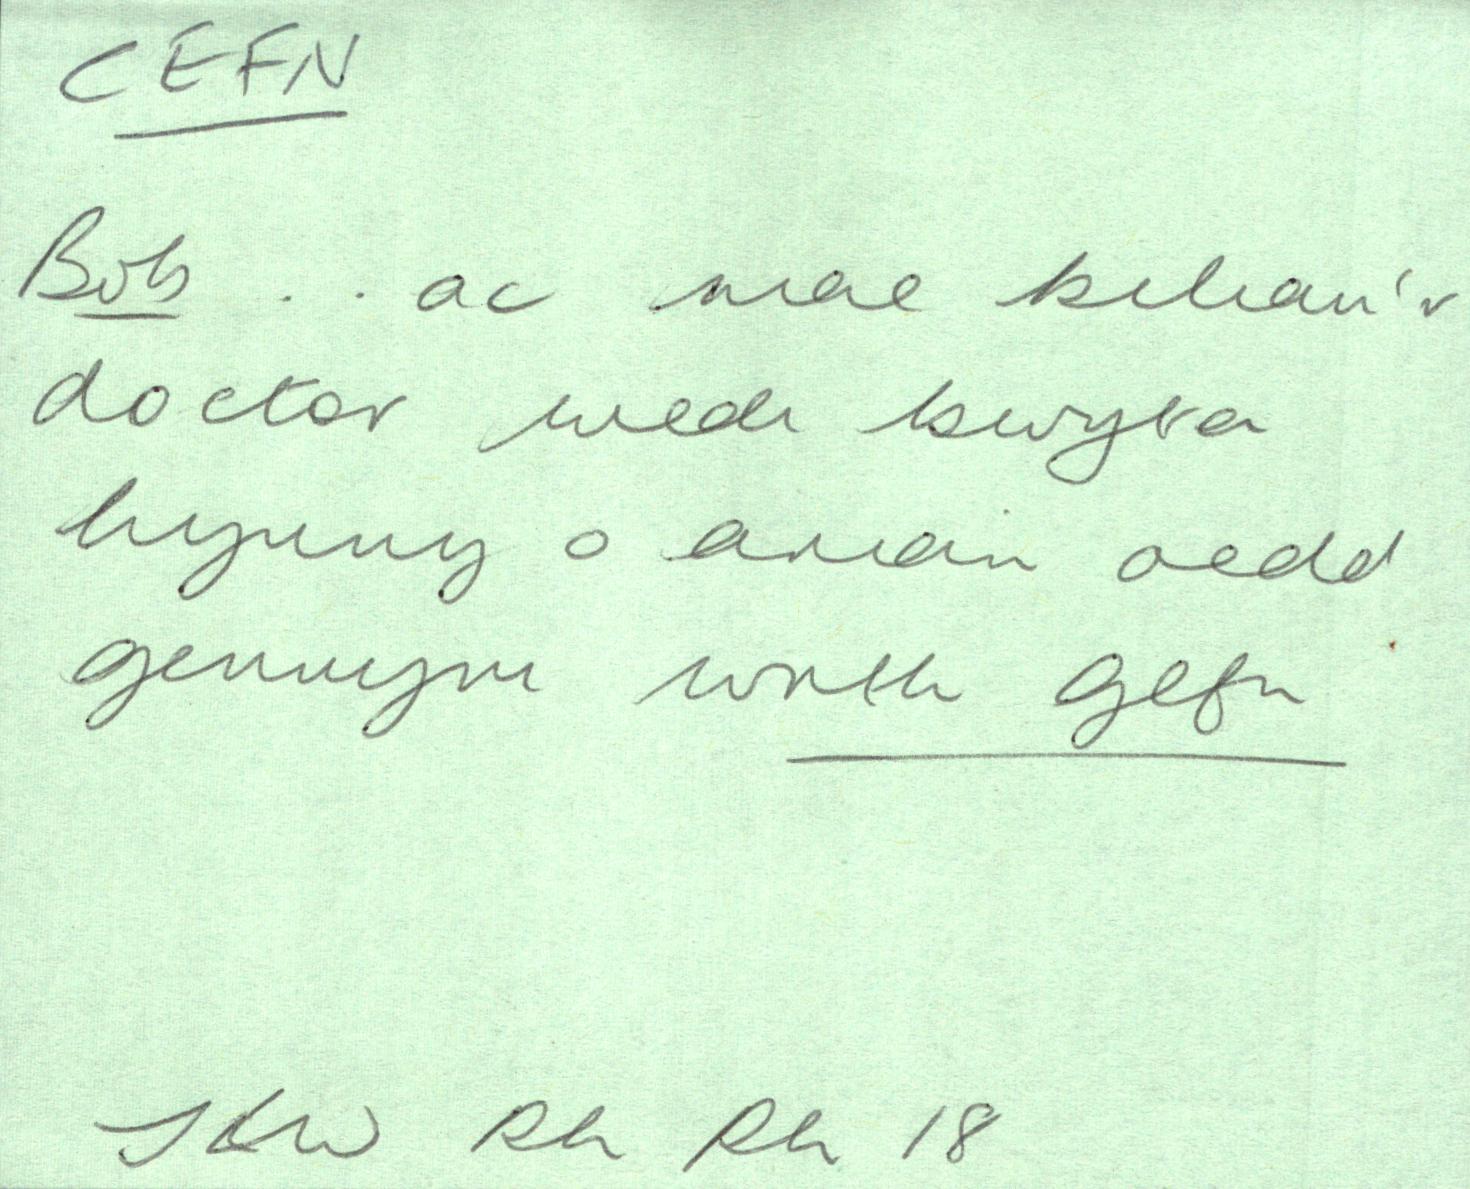 CEFN
Bob . . ac mae biliau'r
doctor wedi bwyta
hynny o arian oedd
gennym wrth gefn
Rh Rh 18